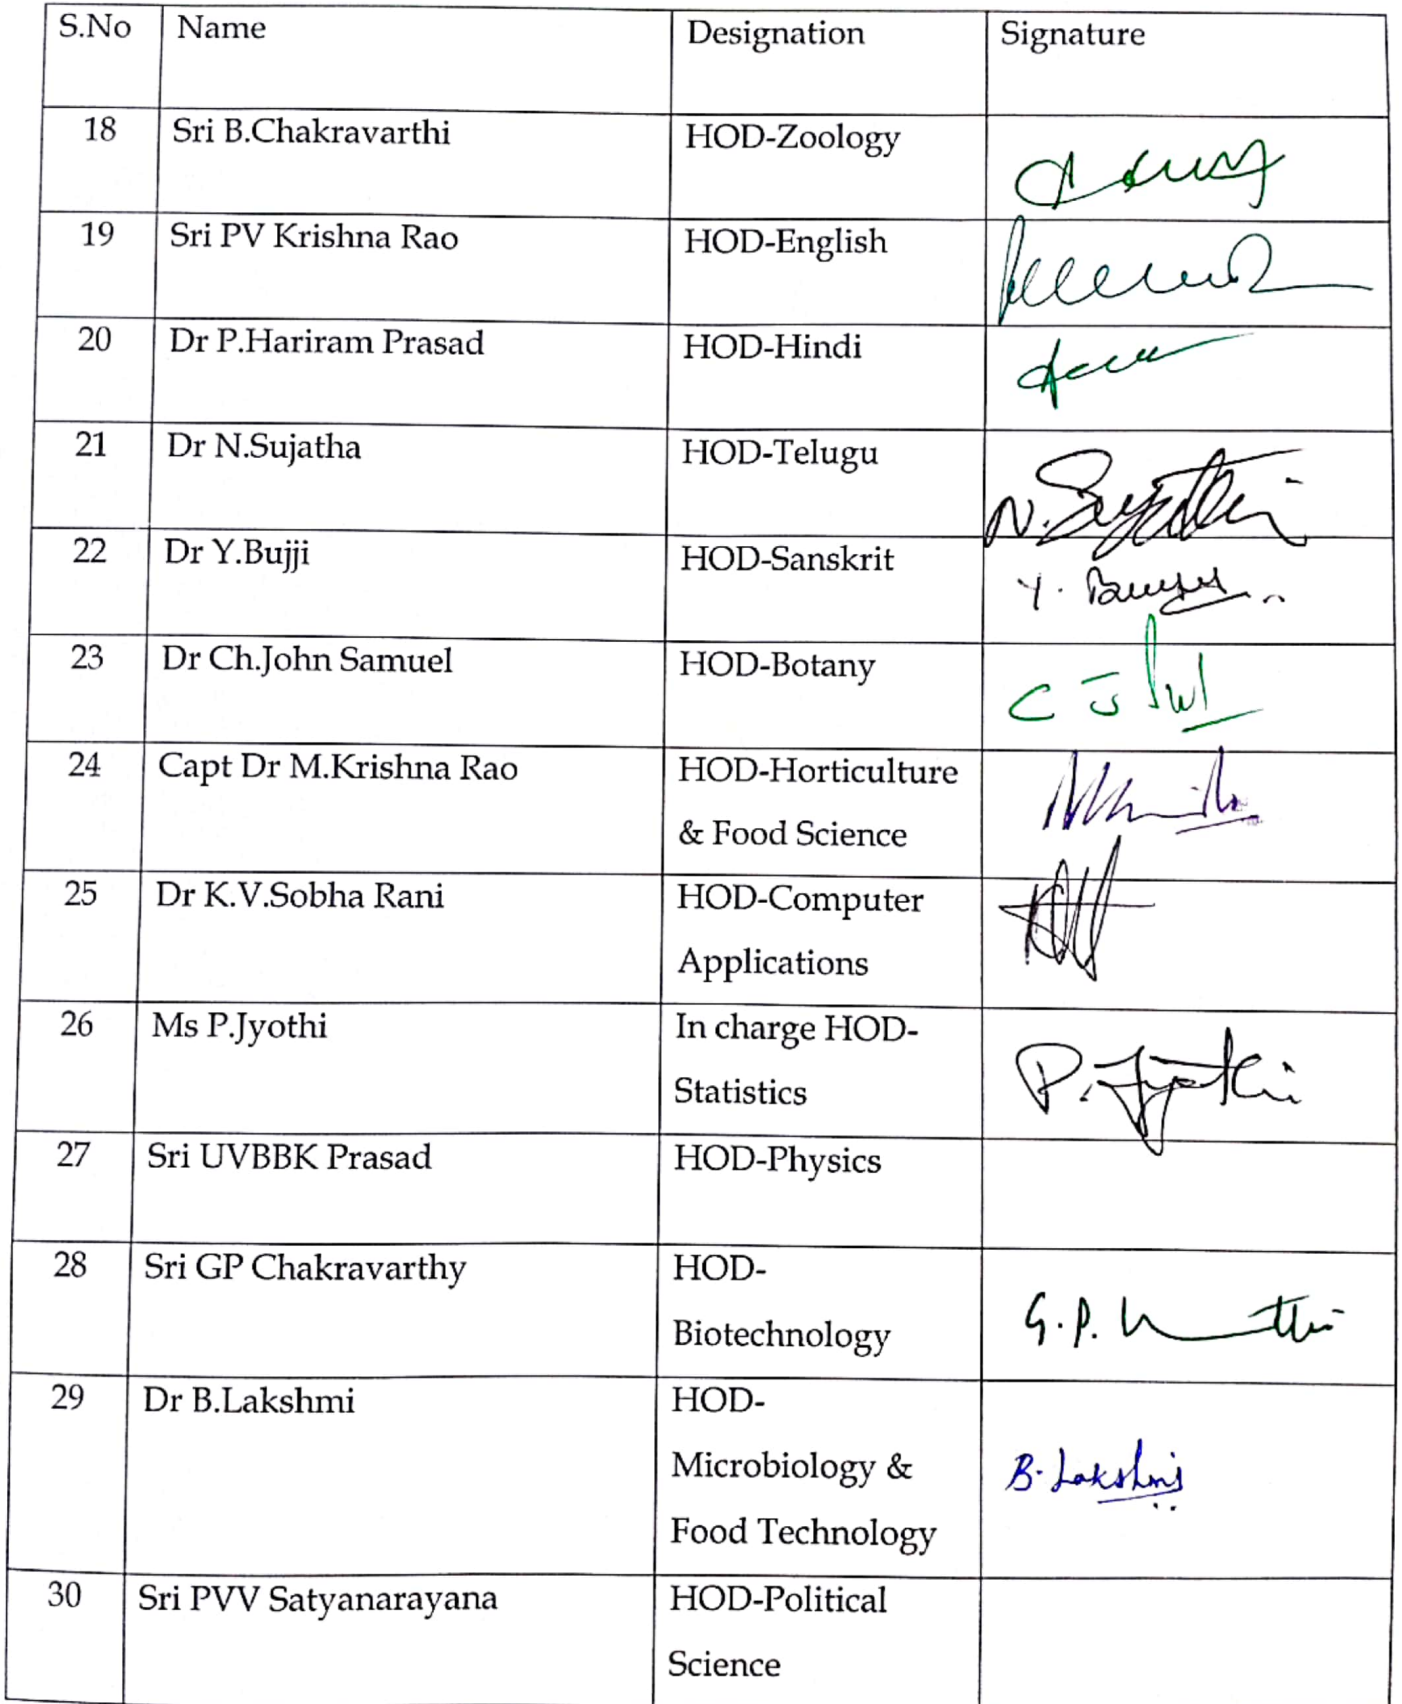 S.No Name Designation Signature
18 Sri B.Chakravarthi HOD-Zoology
19 Sri PV Krishna Rao HOD-English
20 Dr P.Hariram Prasad HOD-Hindi
21 Dr N.Sujatha HOD-Telugu
N. Sujatha
22 Dr Y.Bujji HOD-Sanskrit
23 Dr Ch.John Samuel HOD-Botany
24 Capt Dr M.Krishna Rao HOD-Horticulture
& Food Science
25 Dr K.V.Sobha Rani HOD-Computer
Applications
26 Ms P.Jyothi In charge HOD-
P. Jyothi
Statistics
27 Sri UVBBK Prasad HOD-Physics
28 Sri GP Chakravarthy HOD-
G.P.
Biotechnology
29 Dr B.Lakshmi HOD-
Microbiology & B. Lakshmi
Food Technology
30 Sri PVV Satyanarayana HOD-Political
Science